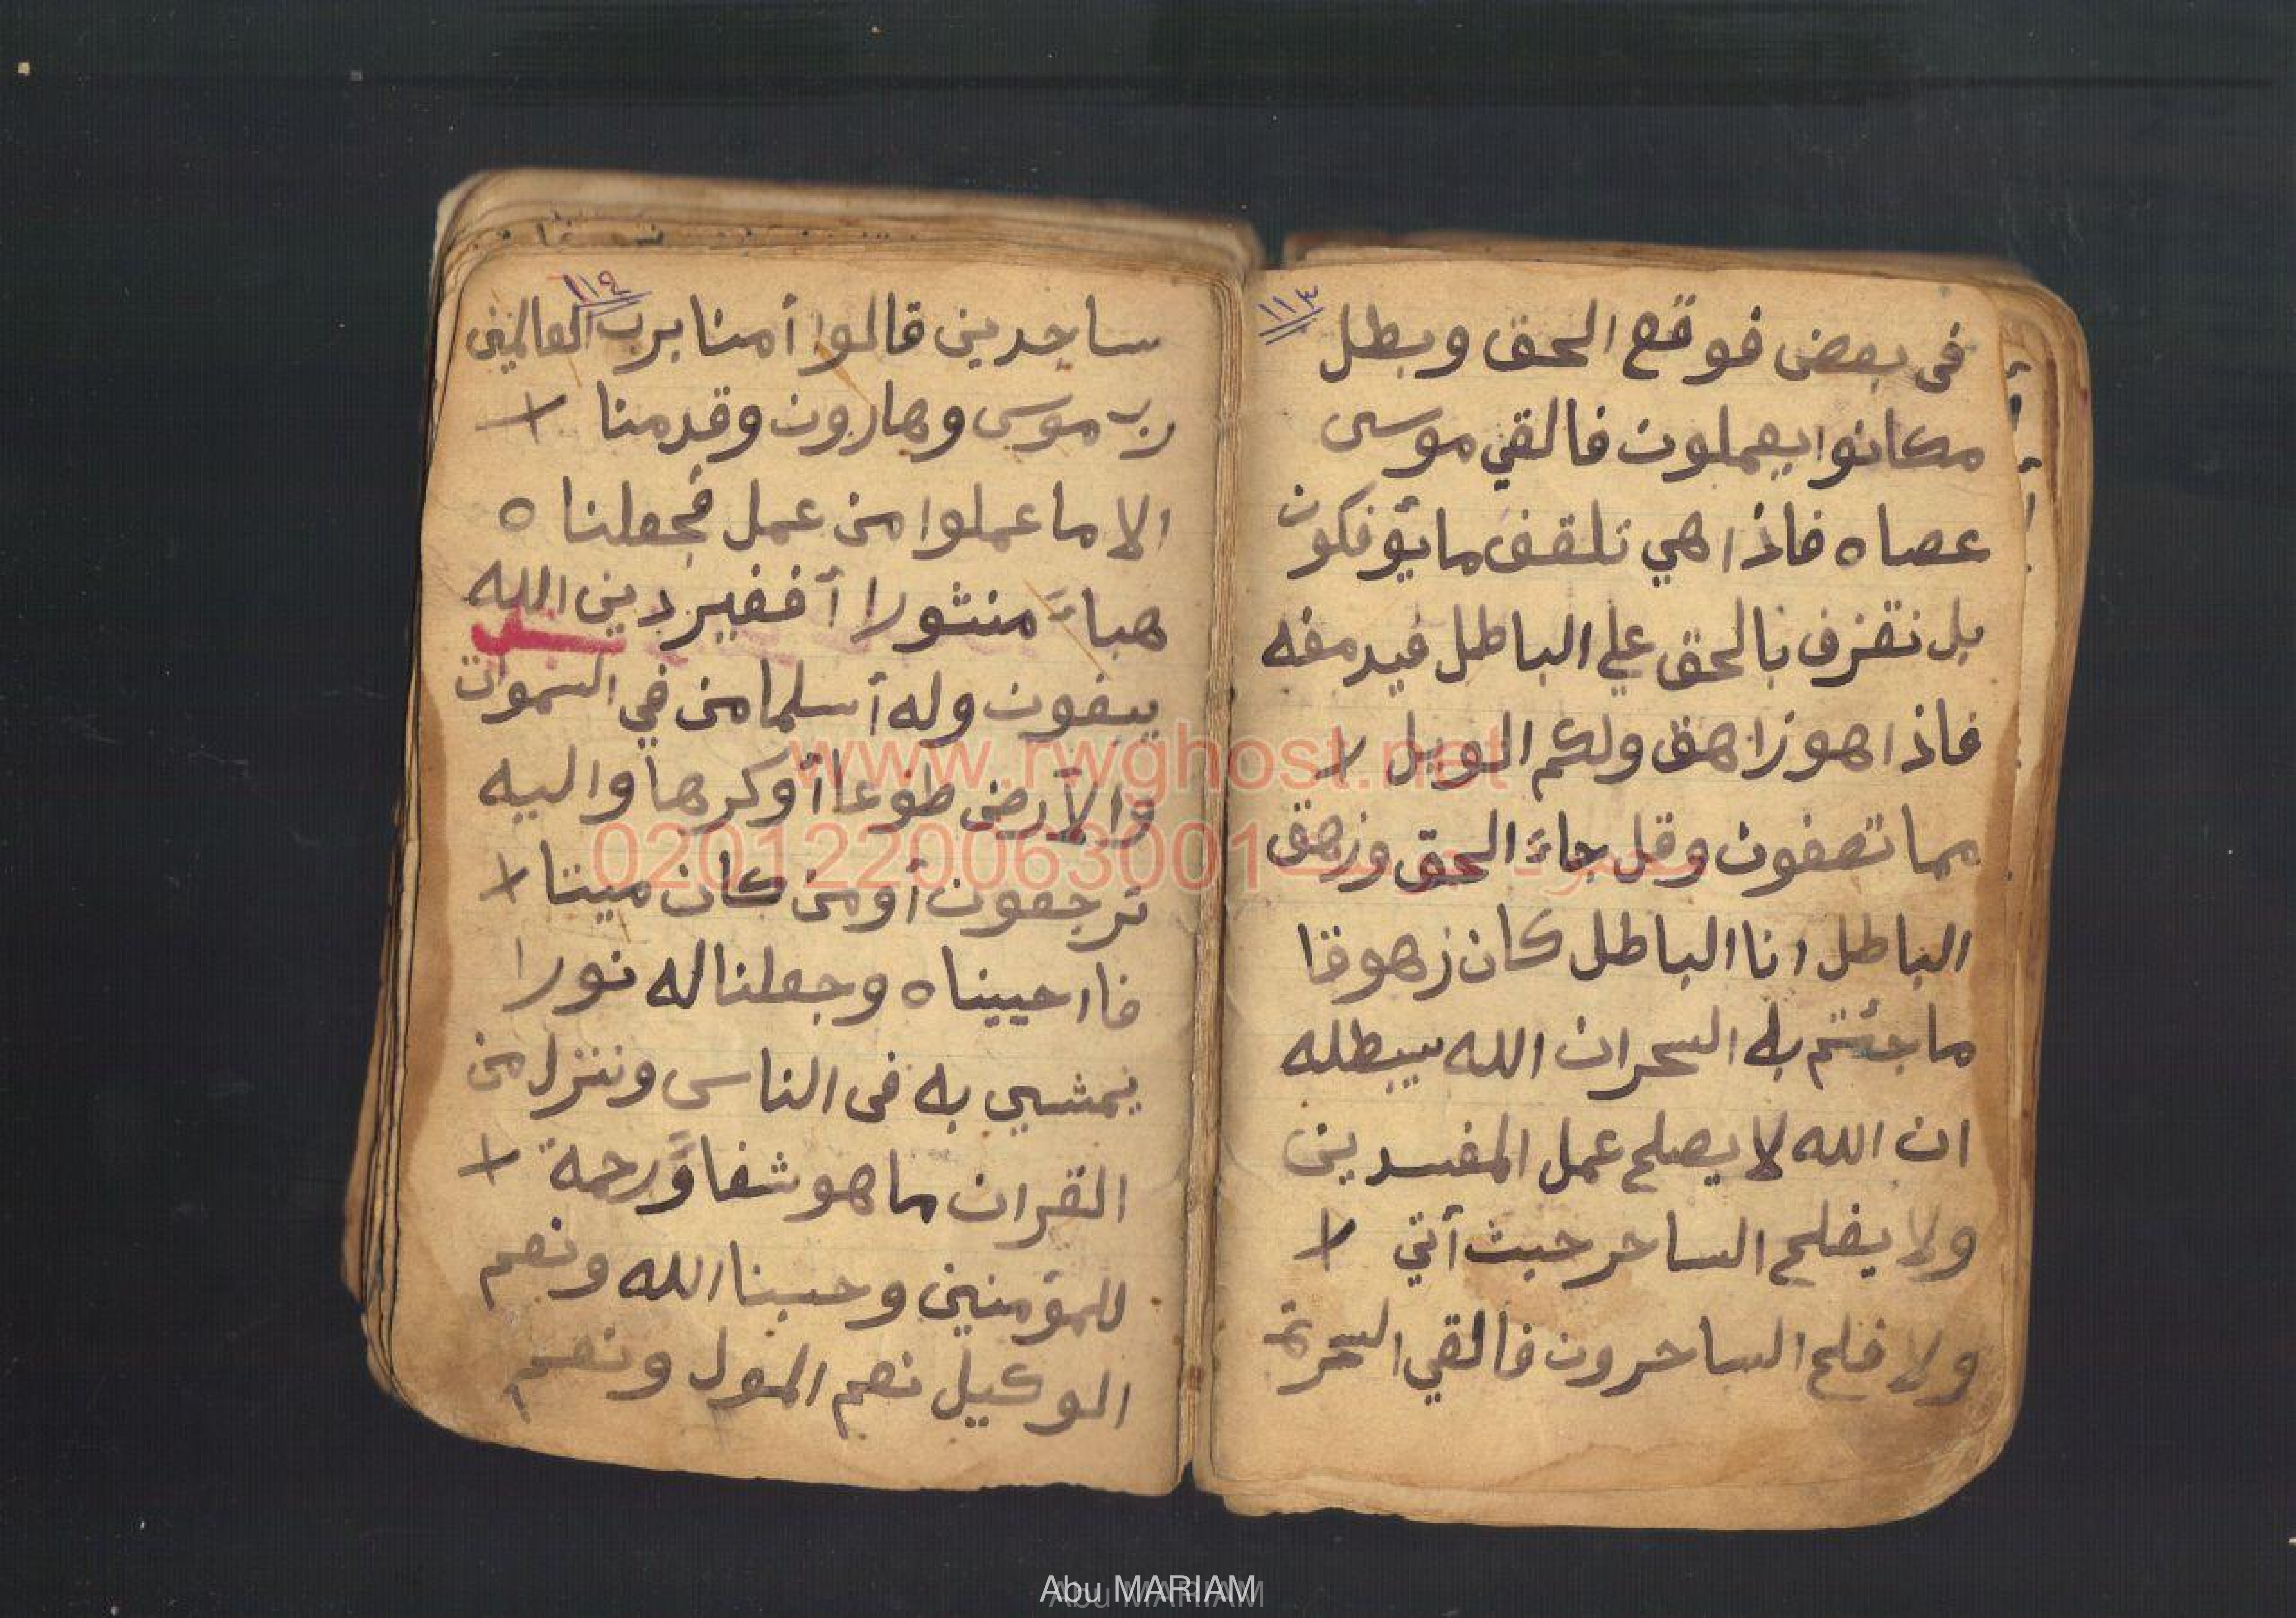 ١١٣
في بعض فوقع الحق وبطل
مكانوا يعملون فالقي موسى
عصاه فاذا هي تلقف ما يؤفكون
بل نقزف بالحق علي الباطل فيدمغه
فاذا هو زاهق ولكم الويل
مما تصفون وقل جاء الحق وزهق
الباطل انا الباطل كان زهوقا
ما جئتم به السحر ان الله سيبطله
ان الله لا يصلح عمل المفسدين
ولا يفلح الساحر حيث أتي
ولا فلح الساحرون فالقي السحرة
١١٤
ساجدين قالوا أمنا برب العالمين
رب موسى وهارون وقدمنا
الا ما عملوا من عمل فجعلناه
هباء منثورا أفغير دين الله
يبغون وله أسلما من في السموات
والأرض طوعا أوكرها واليه
ترجعون أومن كان ميتا
فااحييناه وجعلنا له نورا
يمشي به في الناس وننزل من
القران ما هو شفاء ورحمة
للمؤمنين وحسبنا الله ونعم
الوكيل نعم المول ونعم
www.rwghost.net
0201220063001
Abu MARIAM